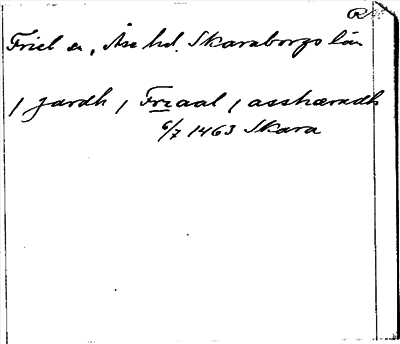 R
Friel sn, Åse hd. Skaraborgs län
/ jardh / Frzaal / asshæradh
6/7 1463 Skara